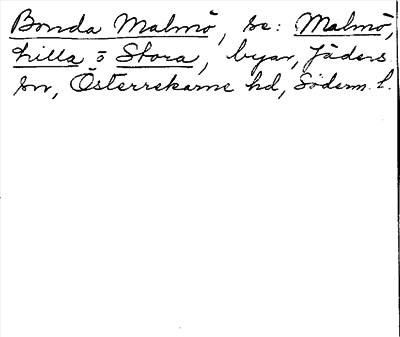 Bonda Malmö, se: Malmö,
Lilla o Stora, byar, Jäders
sn, Österrekarne hd, Söderm. l.